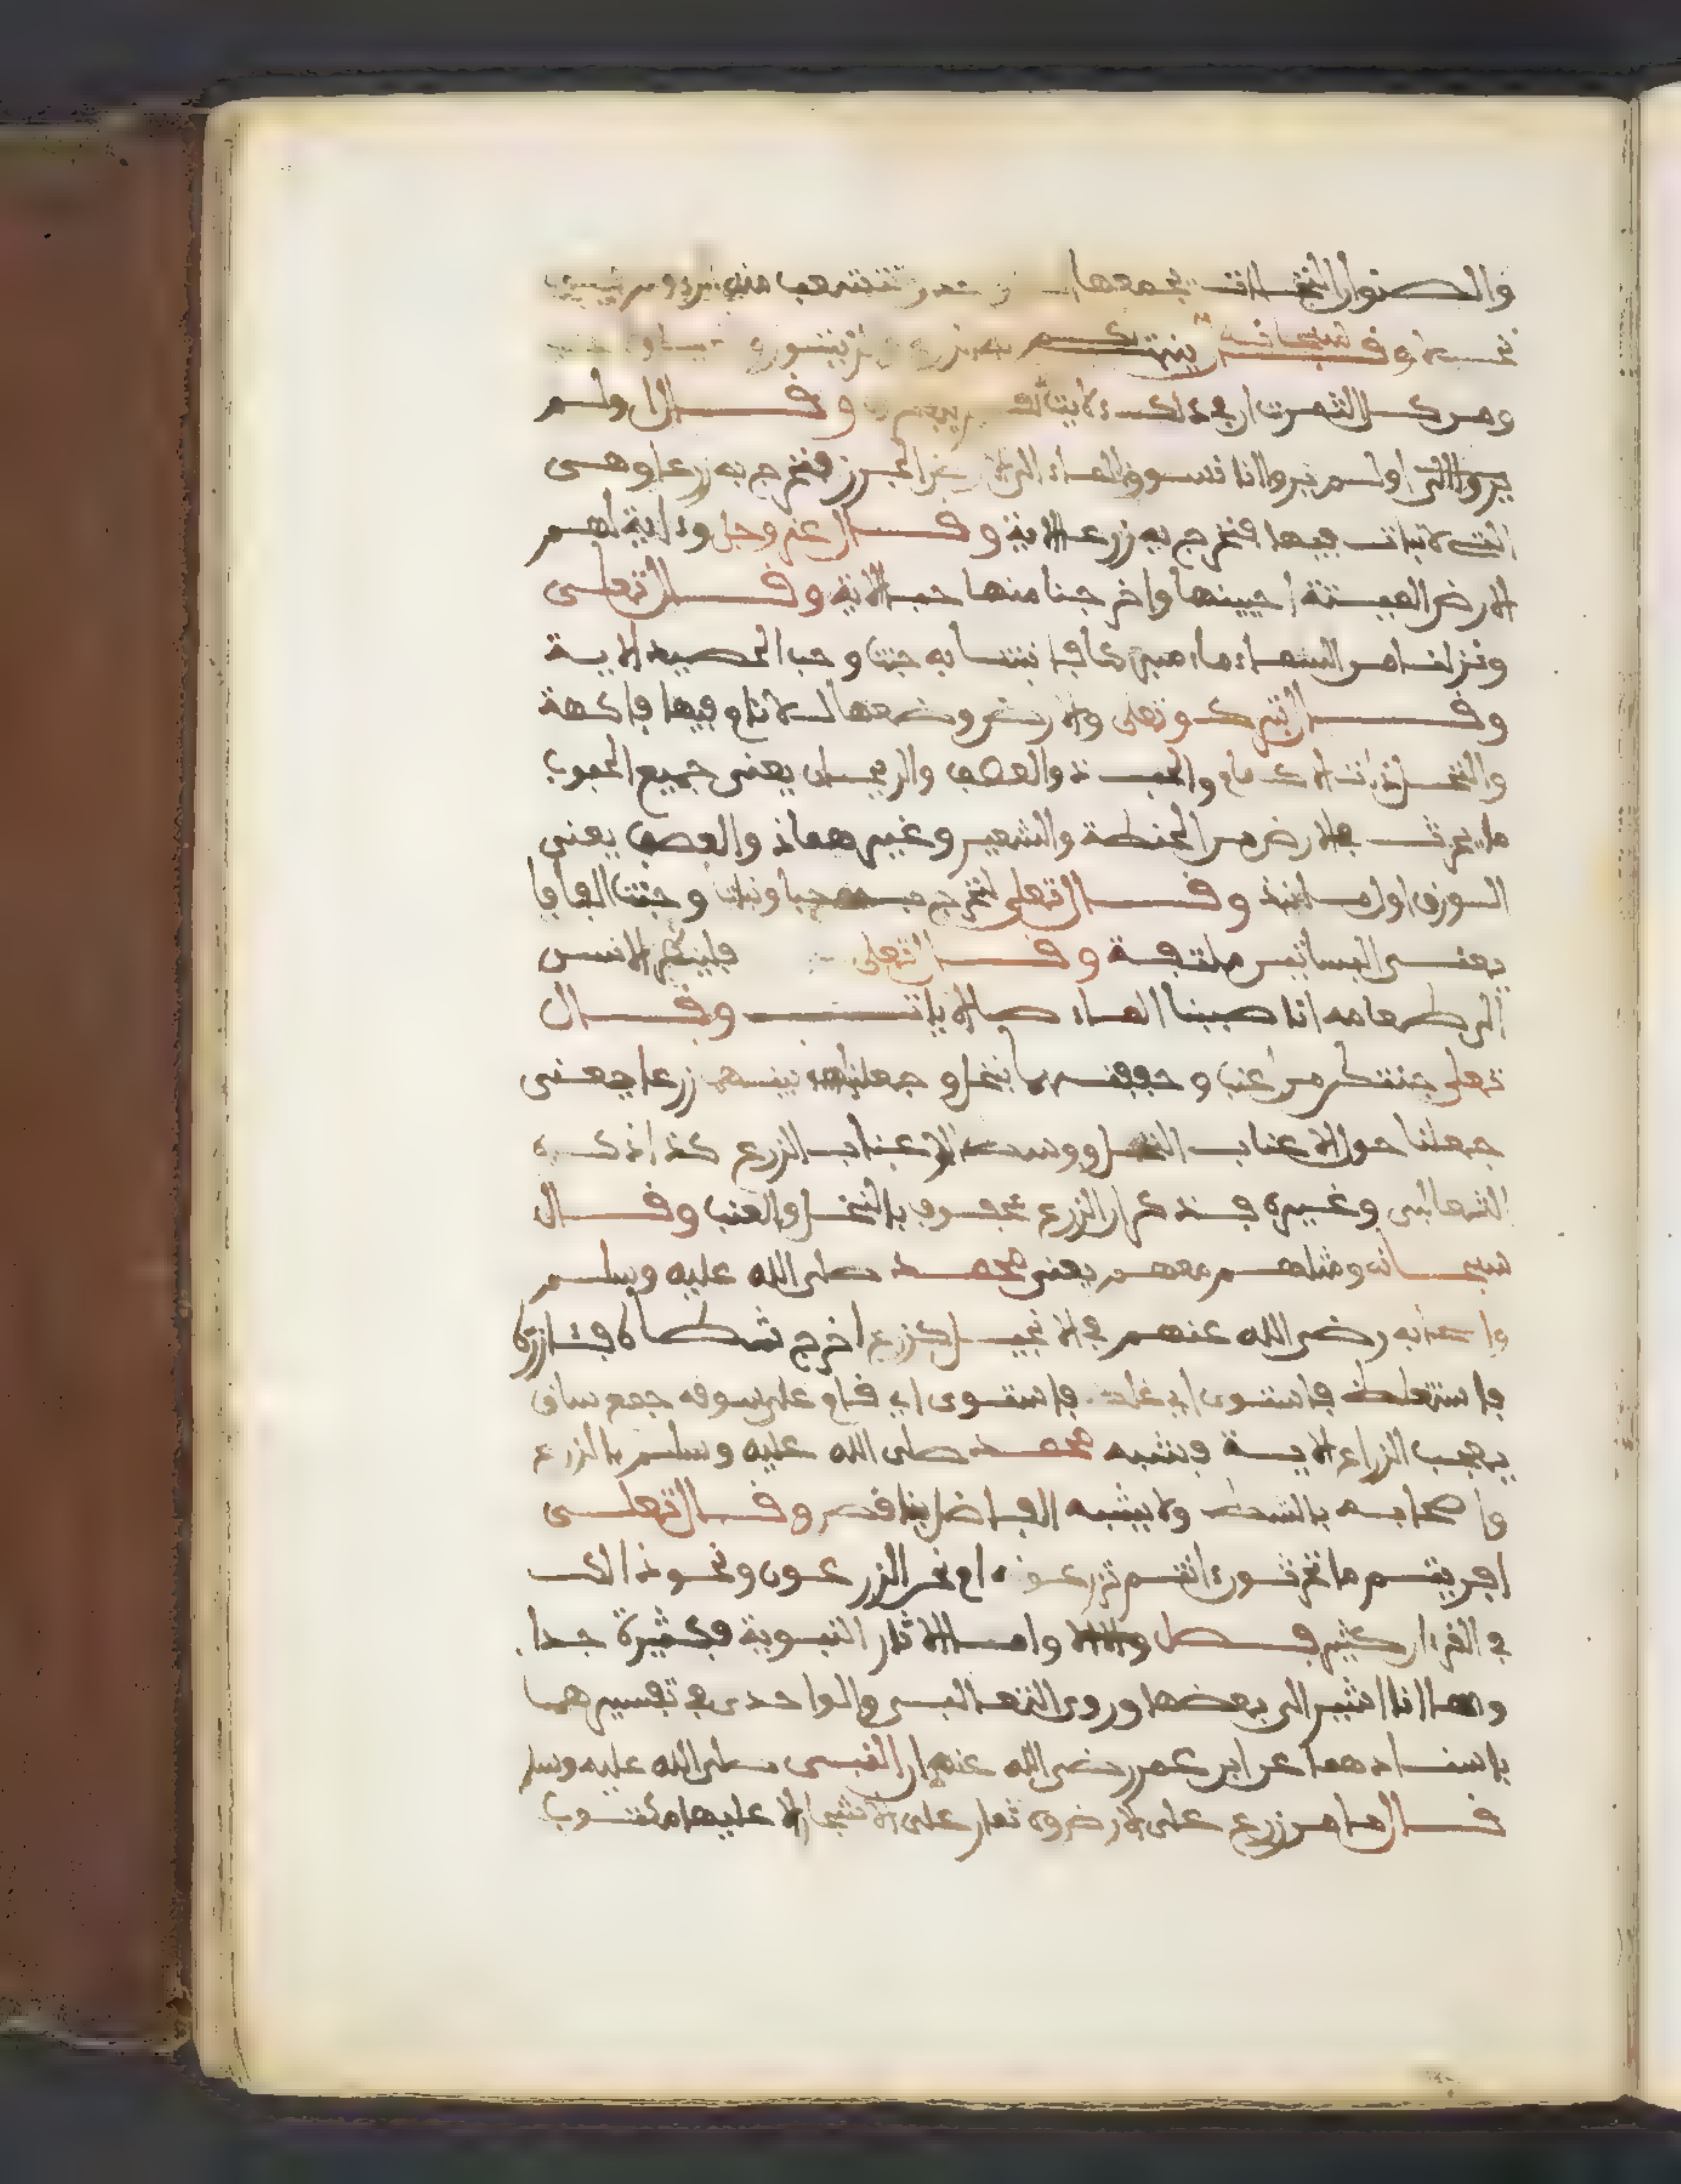 والصنوان النخلات يجمعها
وقال سبحانه ينبت لكم به الزرع والزيتون
ومن كل الثمرت ان في ذلك لاية لقوم وقال اولم
يروا الى اولم يروا انا نسوق الماء الى الارض الجرز فنخرج به زرعا وهي
التي لا نبات فيها فنخرج به زرعا الاية وقال عز وجل وءاية لهم
الارض الميتة احيينها واخرجنا منها حبا الاية وقال تعلى
ونزلنا من السماء ماء مبركا فانبتنا به جنت وحب الحصيد الاية
وقال تبرك وتعلى والارض وضعها للانام فيها فاكهة
والنخل ذات الاكمام والحب ذو العصف والريحان يعني جميع الحبوب
ما يحرث في الارض من الحنطة والشعير وغيرهما والعصف يعني
الورق اول ما وقال تعلى لنخرج به حبا ونباتا وجنت الفافا
يعني البساتين ملتفة وقال تعلى فلينظر الانسن
الى طعامه انا صببنا الماء صبا الايات وقال
تعلى جنتين من اعنب وحففنهما بنخل وجعلنا بينهما زرعا يعني
جعلنا حول الاعناب النخل ووسط الاعناب الزرع كذا ذكره
الثعالبي وغيره فذكر ان الزرع محفوف بالنخل والعنب وقال
سبحانه ومثلهم معهم يعني محمد صلى الله عليه وسلم
واصحابه رضي الله عنهم في الانجيل كزرع اخرج شطاه فئازره
فاستغلظ فاستوى اي غلظ فاستوى اي قام على سوقه جمع ساق
يعجب الزراع الاية وشبه محمد صلى الله عليه وسلم بالزرع
واصحابه بالشطء ولا يشبه الفاضل بناقص وقال تعلى
افريتم ما تحرثون ءانتم تزرعونه ام نحن الزرعون ونحو ذالك
في القرءان كثير فصل واما الاثار النبوية فكثيرة جدا
وها انا اشير الى بعضها وروى الثعالبي والواحدي في تفسيرهما
باسنادهما عن ابن عمر رضي الله عنهم ان النبي صلى الله عليه وسلم
قال ما من زرع على الارض ولا ثمار على الاشجار الا عليها مكتوب